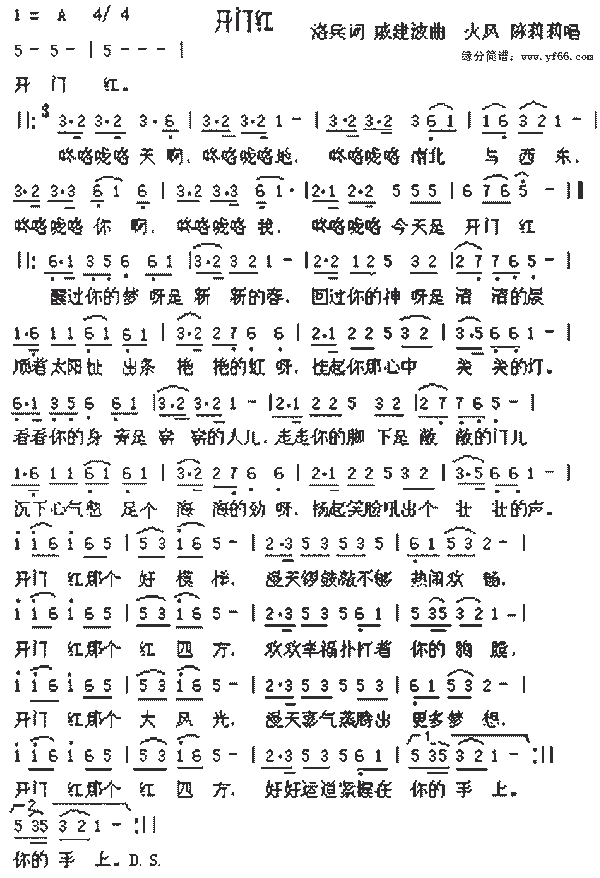 1= A 4/4 开门红 洛兵词 戚建波曲 火风 陈莉莉唱
缘分简谱: www.yf66.com
5 - 5 - | 5 - - - |
开 门 红。
||: 3·2 3·2 3· 6 | 3·2 3·2 1 - | 3·2 3·2 3 6 1 | 1 6 3 2 1 - |
咚咯咙咯 天 啊, 咚咯咙咯地, 咚咯咙咯 南北 与 西 东,
3·2 3·3 6 1 6 | 3·2 3·3 6 1· | 2·1 2·2 5 5 5 | 6 7 6 5 - ‖
咚咯咙咯 你 啊, 咚咯咙咯 我, 咚咯咙咯 今天是 开门 红
||: 6·1 3 5 6 6 1 | 3·2 3 2 1 - | 2·2 1 2 5 3 2 | 2 7 7 6 5 - |
醒过你的梦 呀是 新 新的春, 回过你的神 呀是 清 清的晨
1·6 1 1 6 1 6 1 | 3·2 2 7 6 6 | 2·1 2 2 5 3 2 | 3·5 6 6 1 - |
顺着太阳扯 出条 艳 艳的虹 呀, 挂起你那心中 关 关的灯。
6·1 3 5 6 6 1 | 3·2 3·2 1 - | 2·1 2 2 5 3 2 | 2 7 7 6 5 - |
看看你的身 旁是 窈 窈的人儿, 走走你的脚 下是 敞 敞的门儿
1·6 1 1 6 1 6 1 | 3·2 2 7 6 6 | 2·1 2 2 5 3 2 | 3·5 6 6 1 - |
沉下心气憋 足个 海 海的劲 呀, 扬起笑脸吼出个 壮 壮的声。
i i 6 i 6 5 | 5 3 i 6 5 - | 2·3 5 3 5 3 5 | 6 1 5 3 2 - |
开门 红那个 好 模 样, 漫天锣鼓敲不够 热闹欢 畅,
i i 6 i 6 5 | 5 3 i 6 5 - | 2·3 5 3 5 6 1 | 5 35 3 2 1 - |
开门 红那个 红 四 方, 欢欢幸福扑打着 你的 胸 膛,
i i 6 i 6 5 | 5 3 i 6 5 - | 2·3 5 3 5 5 3 | 6 1 5 3 2 - |
开门 红那个 大 风 光, 漫天喜气蒸腾出 更多梦 想,
i i 6 i 6 5 | 5 3 i 6 5 - | 2·3 5 3 5 6 1 | 1. 5 35 3 2 1 - :||
开门 红那个 红 四 方, 好好运道紧握在 你的 手 上。
2. 5 35 3 2 1 - :||
你的 手 上。D.S.